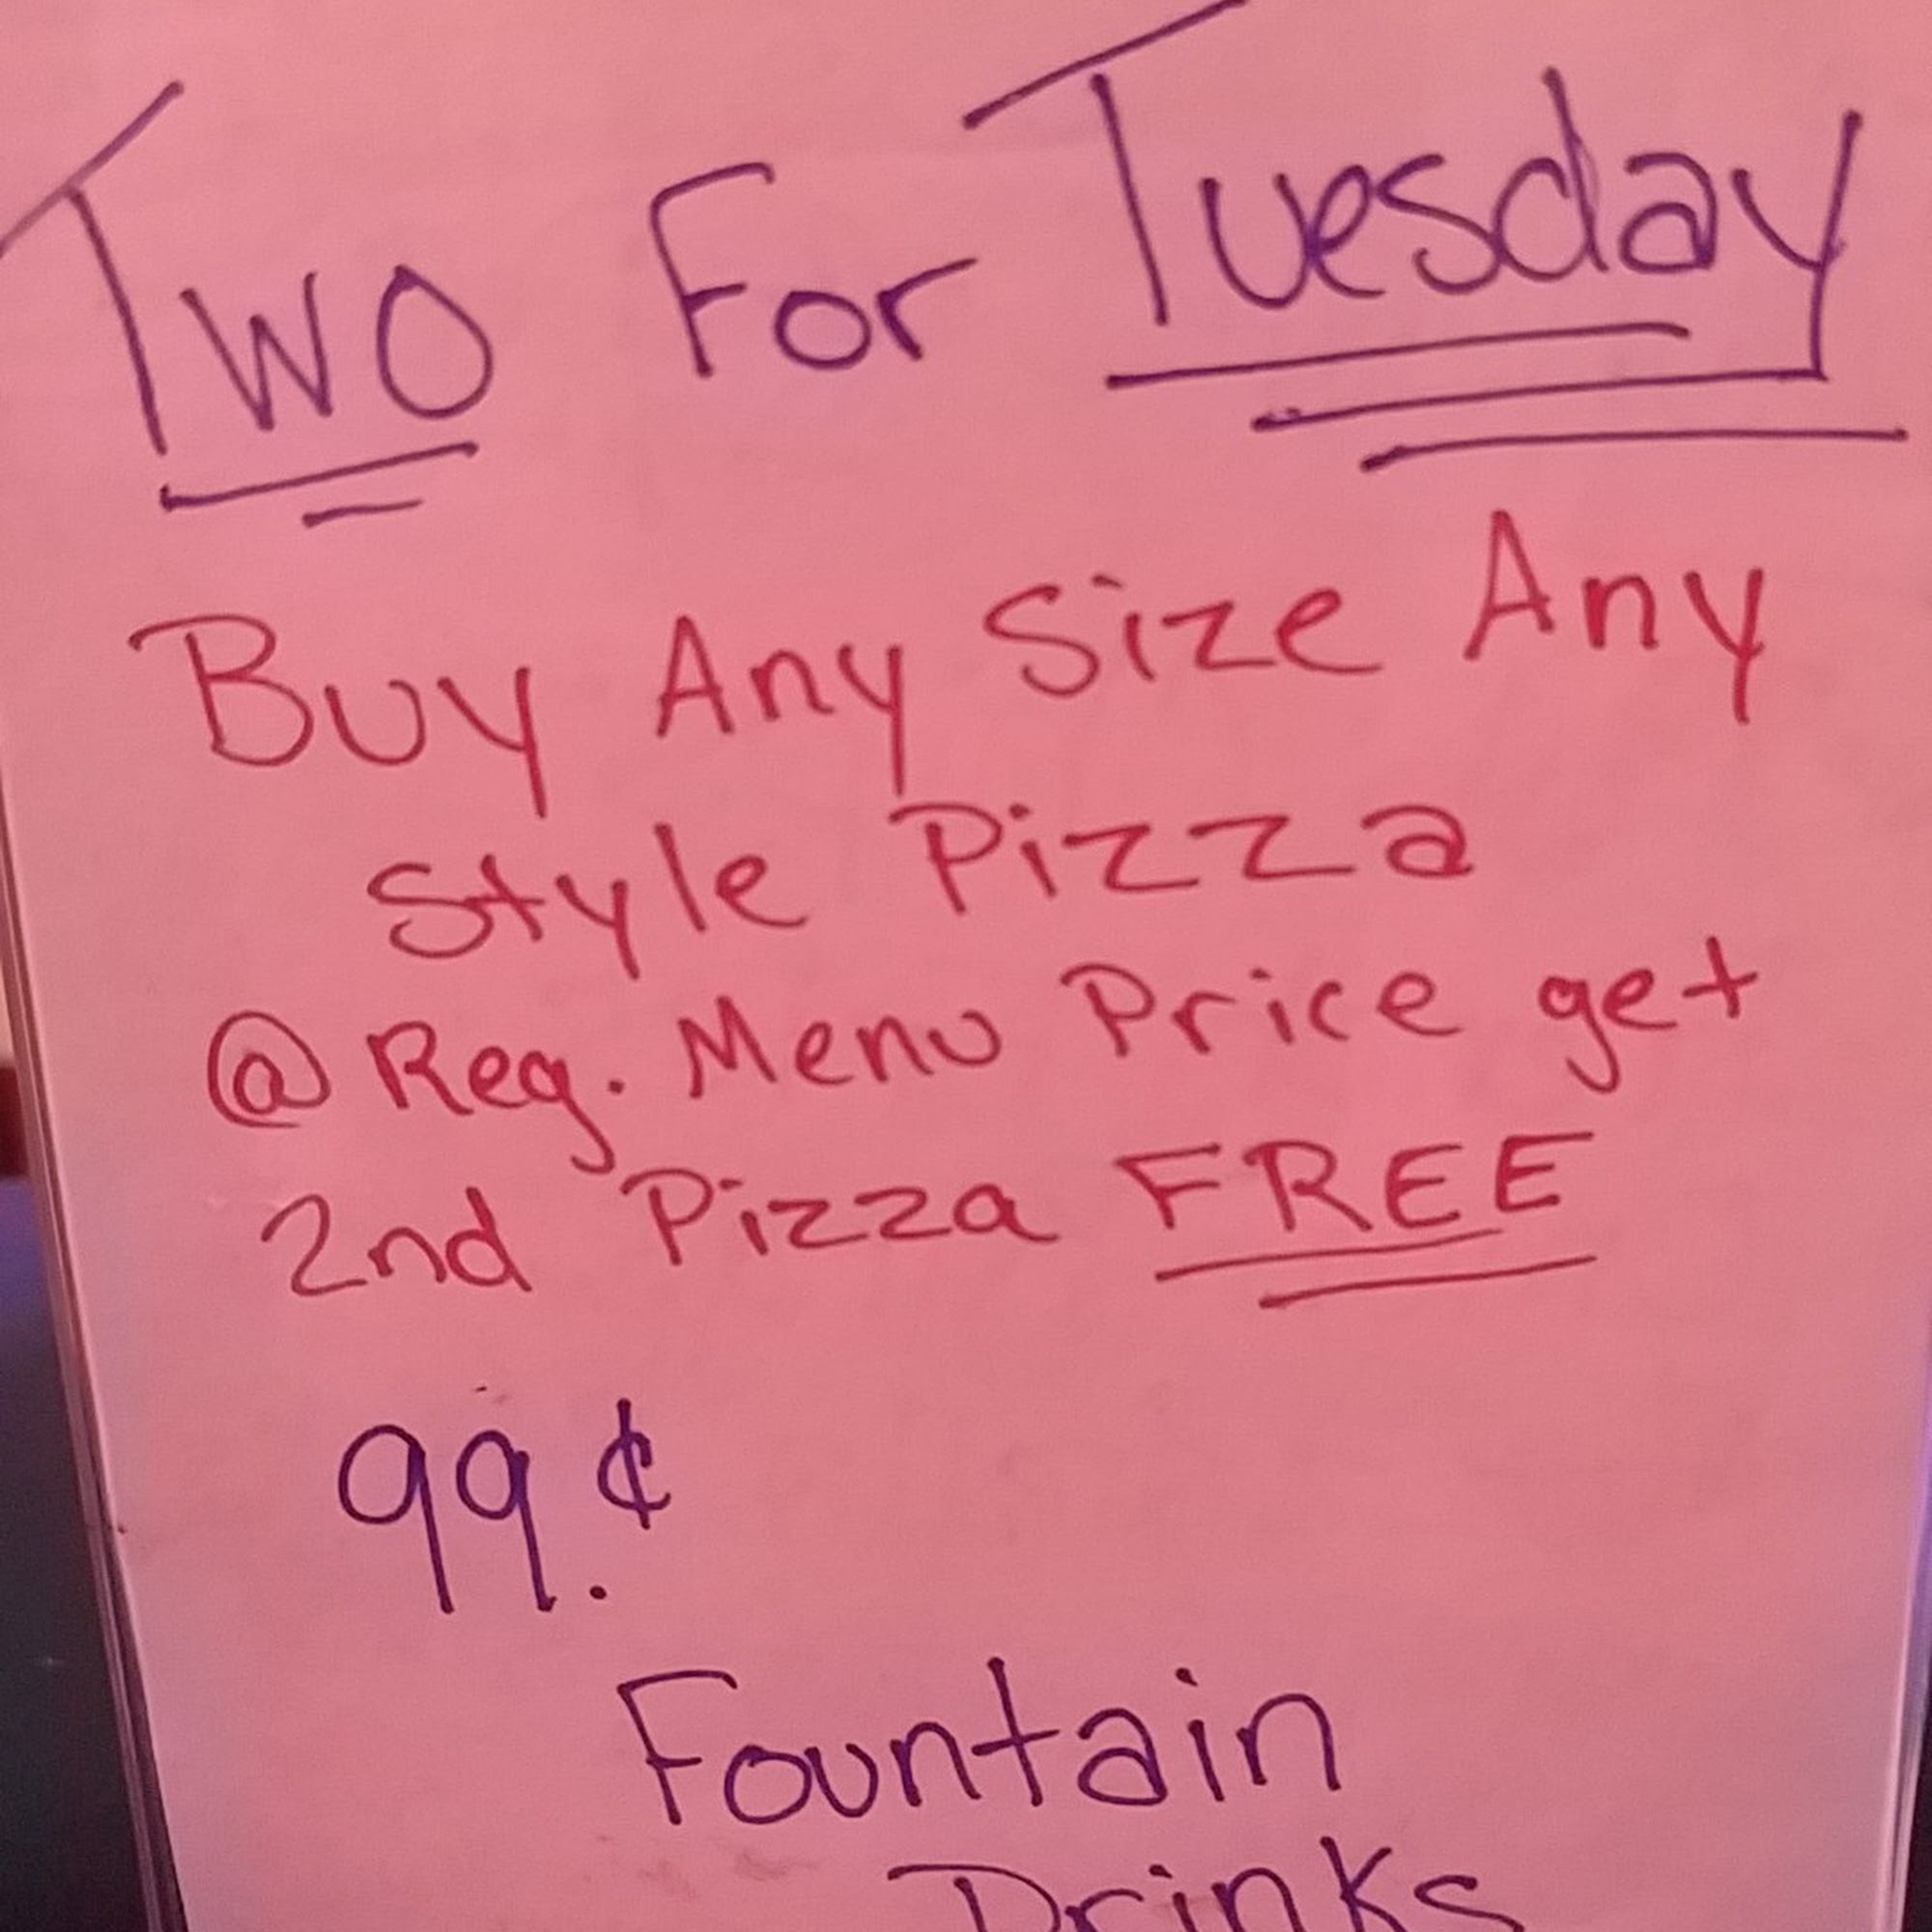 Two For Tuesday
Buy Any Size Any
Style Pizza
@ Reg. Menu Price get
2nd Pizza FREE
99.¢
Fountain
Drinks